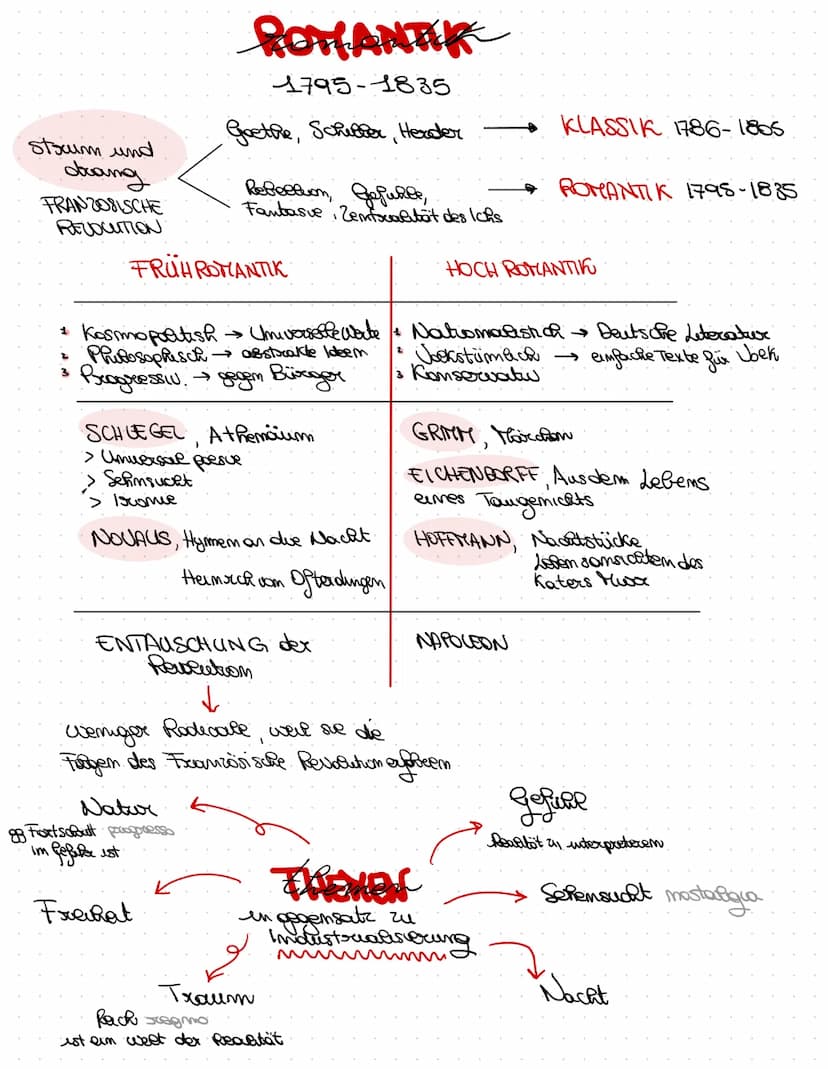 ROMANTIK
romantik
1795-1835
Goethe, Schiller, Herder → KLASSIK 1786-1805
Sturm und
drang
Rebellion, Gefühle, → ROMANTIK 1795-1835
Fantasie, Zentralität des Ichs
FRANZÖSISCHE
REVOLUTION
FRÜHROMANTIK
HOCH ROMANTIK
1 Kosmopolitish → Universelle Werte
2 Philosophisch → abstrakte Ideen
3 Progressiv. → gegen Bürger
1 Nationalistich → Deutsche Literatur
2 Volkstümlich → einfache Texte für Volk
3 Konservativ
SCHLEGEL, Athenäum
> Universal poesie
> Sehnsucht
> Ironie
NOVALIS, Hymnen an die Nacht
Heinrich von Ofterdingen
GRIMM, Märchen
EICHENDORFF, Aus dem Lebens
eines Taugenichts
HOFFMANN, Nachtstücke
Lebensansichten des
Katers Murr
ENTÄUSCHUNG der
Revolution
NAPOLEON
weniger Radicale, weil sie die
Folgen des Französische Revolution
Natur
gg Fortschritt progresso
im Gefahr ist
Gefühl
Realität zu interpretieren
THEMEN
themen
in gegensatz zu
Industrialisierung
Sehensucht nostalgia
Freiheit
Traum
Reich regno
ist ein welt der Realität
Nacht